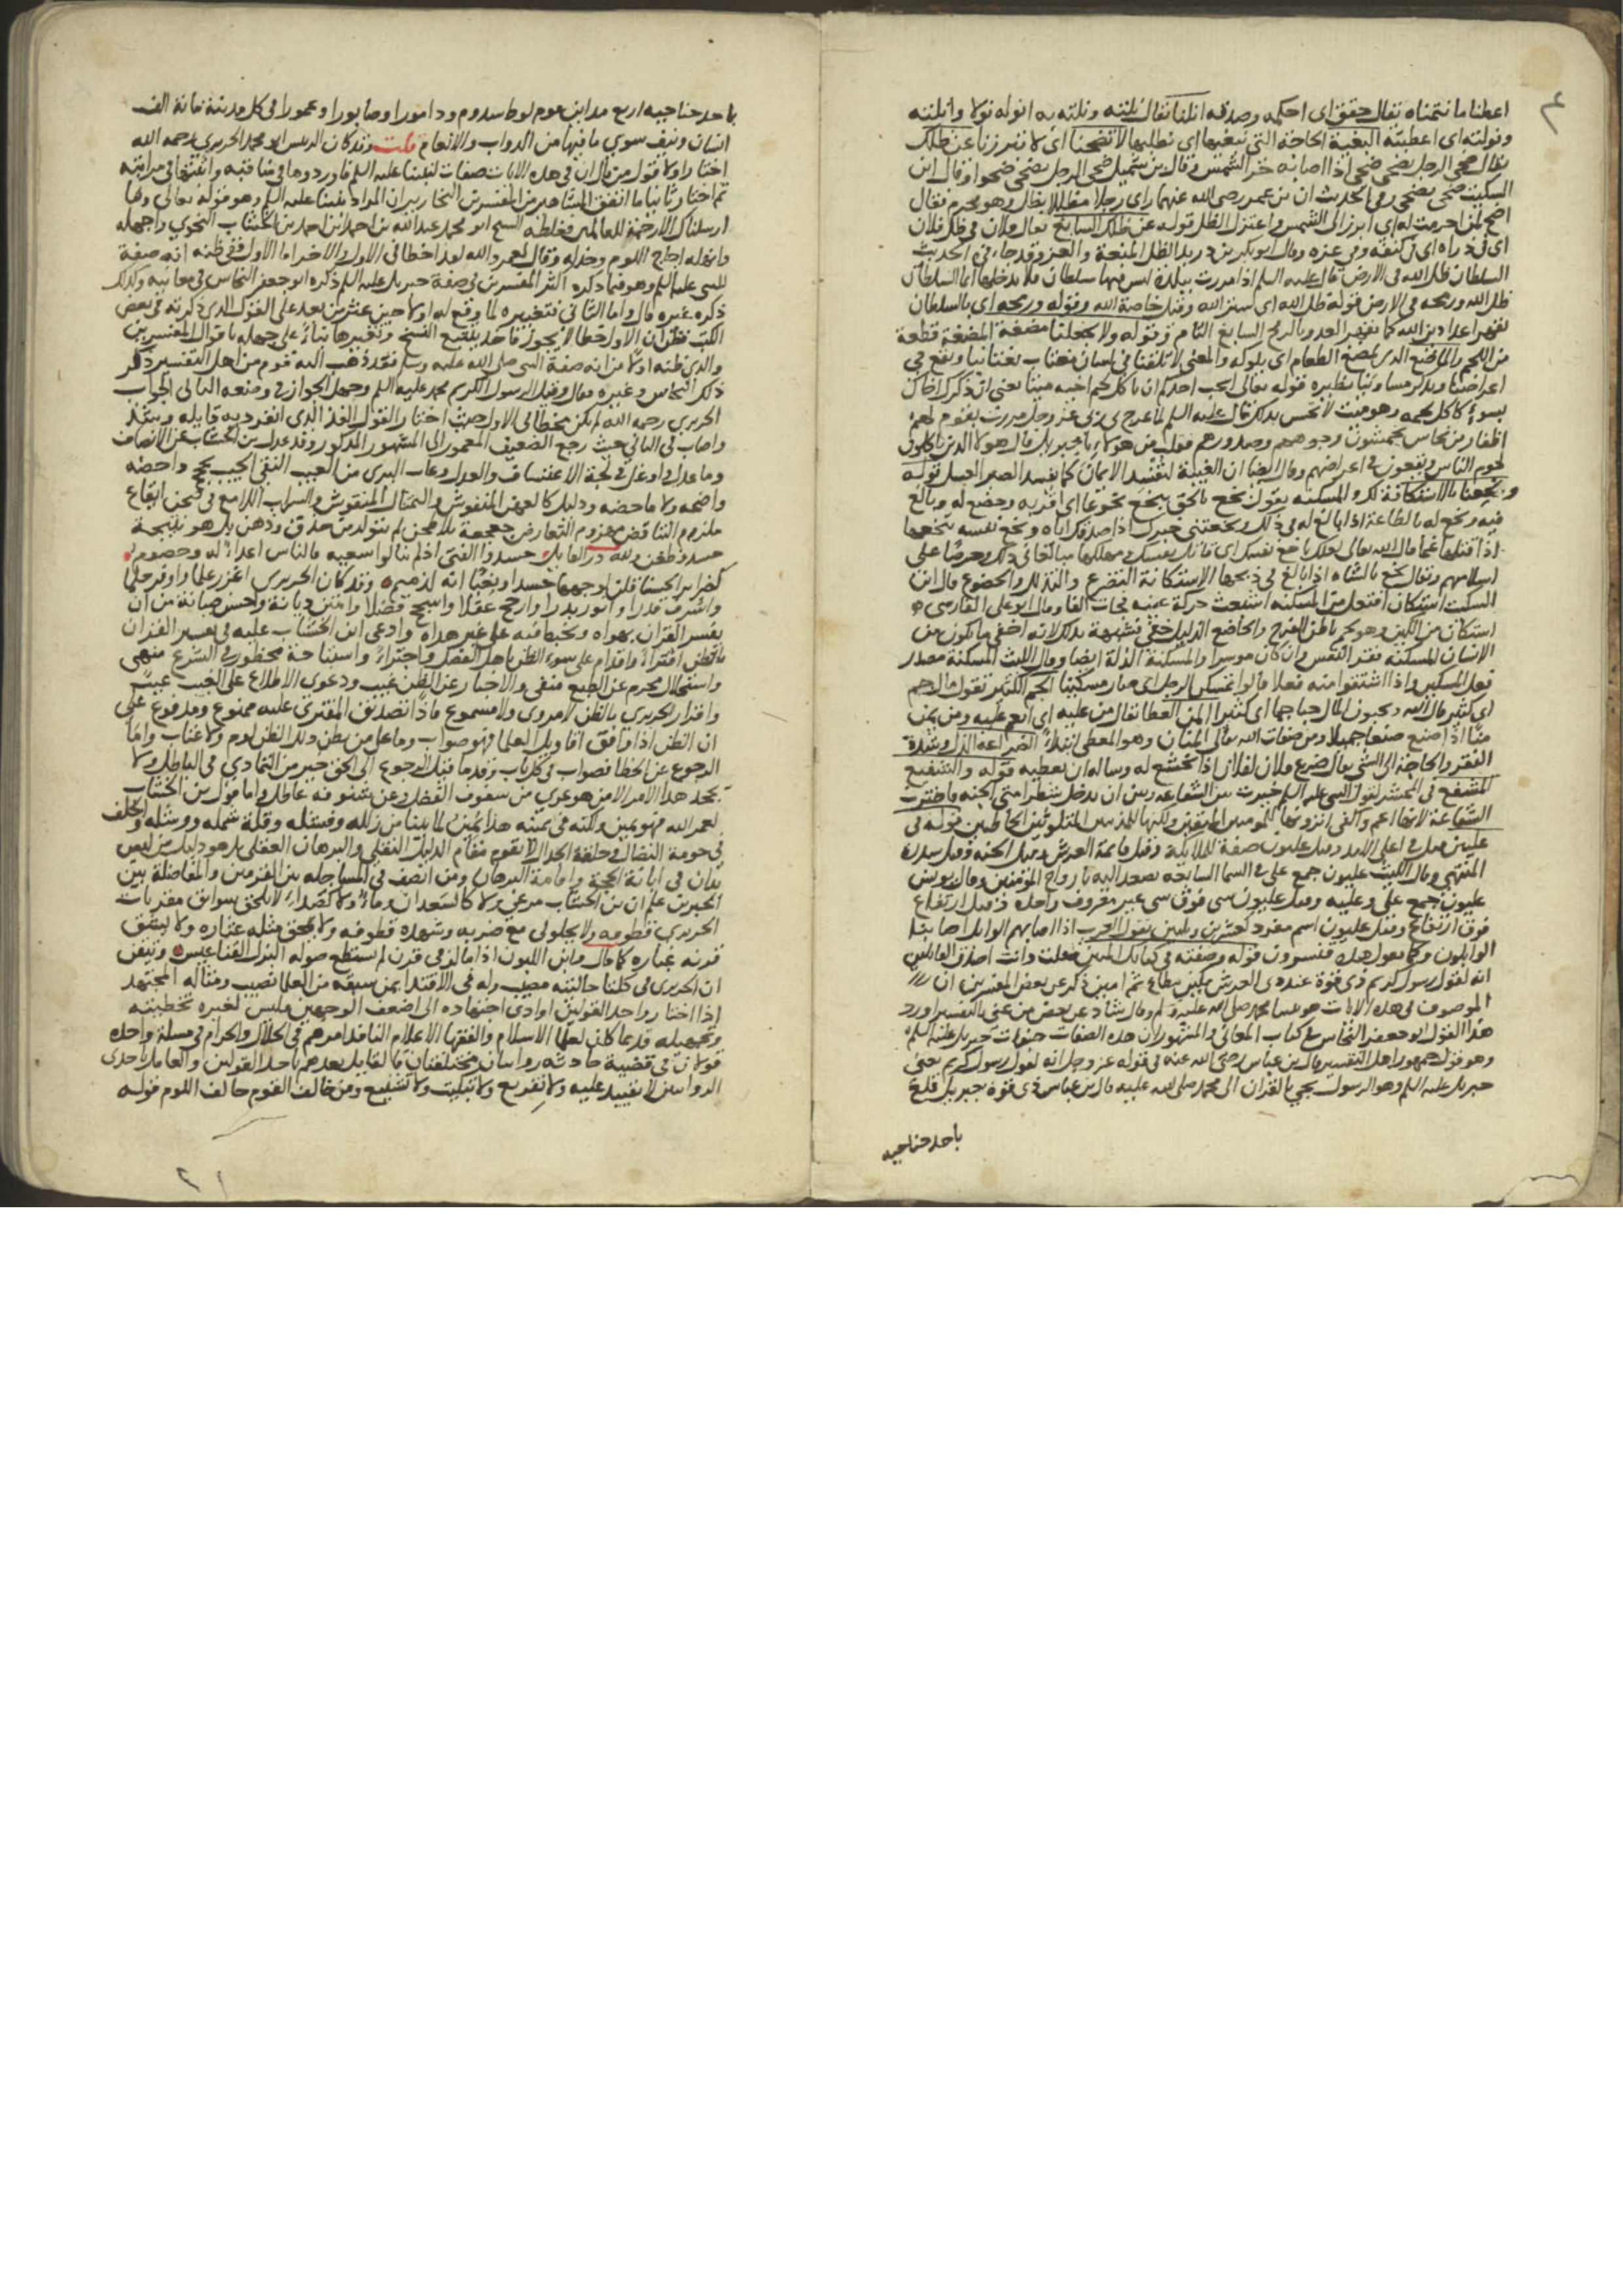 اعطنا ما نتمناه يقال حقق اى احكمه وصدقه انلنا يقال نلته ونلته به انوله نولا وانلته
ونولته اى اعطيته البغية الحاجة التى تبغيها اى تطلبها لا تضحنا اى لا تبرزنا عن ظلك
يقال ضحى الرجل يضحى ضحى اذا اصابه حر الشمس وقال بن شميل ضحى الرجل يضحى ضحوا وقال ابن
السكيت ضحى يضحى وفى الحديث ان بن عمر رضى الله عنهما راى رجلا مظللا يظال وهو محرم فقال
اضح لمن احرمت له اى ابرز الى الشمس واعتزل الظل قوله عن ظلك السابغ يقال فلان فى ظل فلان
اى فى ذراه اى فى كنفه وفى عزه وقال ابو بكر بن دريد الظل المنعة والعز وقد جا فى الحديث
السلطان ظل الله فى الارض قال عليه السلم اذا مررت ببلدة ليس فيها سلطان فلا تدخلها انما السلطان
ظل الله ورمحه فى الارض قوله ظل الله اى ستر الله وقيل خاصة الله وقوله ورمحه اى بالسلطان
يقهر اعدا دين الله كما يقهر العدو بالرمح السابغ التام وقوله ولا تجعلنا مضغة المضغة قطعة
من اللحم والماضغ الذى يمضغ الطعام اى يلوكه والمعنى لا تلقنا فى لسان مغتاب يغتابنا ويقع فى
اعراضنا ويذكر مساوئنا نظيره قوله تعالى ايحب احدكم ان ياكل لحم اخيه ميتا يعنى ان ذكرك اخاك
بسوء كاكل لحمه وهو ميت لا يحس بذلك قال عليه السلم لما عرج بى ربى عز وجل مررت بقوم لهم
اظفار من نحاس يخمشون وجوههم وصدورهم فقلت من هولاء يا جبريل قال هولا الذين ياكلون
لحوم الناس ويقعون فى اعراضهم وقال ايضا ان الغيبة لتفسد الايمان كما يفسد الصبر العسل قوله
وبخعنا بالاستكانة لك والمسكنه يقول بخع بالحق يبخع بخوعا اى اقر به وخضع له وبالغ
فيه وبخع له بالطاعة اذا بالغ له فى ذلك وبخعتنى خبرك اذا صدقك اياه وبخع نفسه يبخعها
اذا قتلها غما قال الله تعالى لعلك باخع نفسك اى قاتل نفسك ومهلكها مبالغا فى ذلك وحرصا على
اسلامهم ويقال بخع بالشاه اذا بالغ فى ذبحها الاستكانة التضرع والتذلل والخضوع قال ابن
السكيت استكان افتعل من المسكنه اشبعت حركة عينه فجات الفا وقال ابو على الفارسى
استكان من الكين وهو لحم باطن الفرج والخاضع الذليل خفى فشبهه بذلك لانه اخفى ما يكون من
الانسان المسكنه فقر النفس وان كان موسرا والمسكنة الذلة ايضا وقال الليث المسكنة مصدر
فعل المسكين واذا اشتقوا منه فعلا قالوا تمسكن الرجل اى صار مسكينا الجم الكثير تقول مال جم
اى كثير قال الله وتحبون المال حبا جما اى كثيرا المن العطا يقال من عليه اى انعم عليه ومن يمن
منا اذا صنع صنعا جميلا ومن صفات الله تعالى المنان وهو المعطى ابتداء الضراعة الذل وشدة
الفقر والحاجة الى الشى يقال ضرع فلان لفلان اذا تخشع له وساله ان يعطيه قوله والشفيع
المشفع فى المحشر لقول النبى عليه السلم خيرت بين الشفاعة وبين ان يدخل شطر امتى الجنه فاخترت
الشفاعة لانها اعم واكفى اترونها للمومنين المتقين ولكنها للمذنبين المتلوثين الخاطين قوله فى
عليين قيل فى اعلى الامد وقيل عليون صفة الملايكة وقيل قايمة العرش وقيل الجنه وقيل سدرة
المنتهى وقال الليث عليون جمع على فى السما السابعه يصعد اليه بارواح المومنين وقال يونس
عليون جمع على وعليه وقيل عليون شى فوق شى غير معروف واحده وقيل ارتفاع
فوق ارتفاع وقيل عليون اسم مفرد كعشرين وثلثين تقول العرب اذا اصابهم الوابل اصابتنا
الوابلون وكما تقول هذه قنسرون قوله وصفته فى كتابك المبين فقلت وانت اصدق القايلين
انه لقول رسول كريم ذى قوة عند ذى العرش مكين مطاع ثم امين ذكر عن بعض المفسرين ان
الموصوف فى هذه الايات هو نبينا محمد صلى الله عليه وسلم وقال شاذ عن بعض من عنى بالتفسير اورد
هذا القول ابو جعفر النحاس فى كتاب المعانى والمشهور ان هذه الصفات صفات جبريل عليه السلم
وهو قول جمهور اهل التفسير قال بن عباس رضى الله عنه فى قوله عز وجل انه لقول رسول كريم يعنى
جبريل عليه السلم وهو الرسول يجى بالقران الى محمد صلى الله عليه قال بن عباس ذى قوة جبريل قلع
باحد جناحيه
باحد جناحيه اربع مداين قوم لوط سدوم ودامورا وصابورا وعمورا فى كل مدينة ماية الف
انسان ونيف سوى ما فيها من الدواب والانعام قلت وقد كان الريس ابو محمد الحريرى رحمه الله
اختار اولا قول من قال ان فى هذه الايات صفات لنبينا عليه السلم فاوردها فى مناقبه واثبتها فى مراتبه
ثم اختار ثانيا ما اتفق المشاهير من المفسرين النحارير ان المراد نبينا عليه السلم وهو قوله تعالى وما
ارسلناك الا رحمة للعالمين فغلطه الشيخ ابو محمد عبد الله بن احمد بن احمد بن احمد بن الخشاب النحوى وجهله
للنبى عليه السلم وهو فيما ذكره اكثر المفسرين فى صفة جبريل عليه السلم ذكره ابو جعفر النحاس فى معانيه وكذلك
ذكره غيره قال واما الثانى فتغييره لما وقع له اولا حين عثر من بعد على القول الذى ذكرته فى بعض
الكتب فظن ان الاول خطا لا يجوز فاخذ يتتبع النسخ وتغييرها بناء على جهله باقوال المفسرين
والذى ظنه اولا من انه صفة النبى صلى الله عليه وسلم فقد ذهب اليه قوم من اهل التفسير ذكر
ذلك النحاس وغيره وقال وقيل الرسول الكريم محمد عليه السلم وجهل الجواز فى وضعه الثانى الجواب
الحريرى رحمه الله لم يكن مخطئا فى الاول حيث اختار القول الفذ الذى انفرد به قايله
واصاب فى الثانى حيث رجع الضعيف المغمور الى المشهور المذكور وقد عدل بن الخشاب عن الانصاف
وما عدل اوغل فى لجة الاعتساف والعدل وعاب البرى من العيب النقى الجيب بحجج داحضه
واضحه ولا ماحضه ودليل كالعهن المنفوش والتمثال المنقوش والسراب اللامع فى
ملزوم التناقض مهزوم التعارض جعجعة بلا طحن لم يتولد من حذق وذهن بل هو نتيجة
حسد وطغن ولله در القايل حسدوا الفتى اذ لم ينالوا سعيه فالناس اعداء له وخصوم
كضراير الحسناء قلن لوجهها حسدا وبغيا انه لذميم وقد كان الحريرى اغزر علما واوفر حلما
واشرف قدرا وانور بدرا وارجح عقلا واسبح فضلا وامتن ديانة واحسن صيانة من ان
يفسر القران بهواه ويخبط فيه على غير هداه وادعى ابن الخشاب عليه فى تفسير القران
بالظن افتراء واقدام على سوء الظن باهل الفضل واجتراء واستباحة محظور فى الشرع منهى
واستحلال محرم عن الطبع منفى والاخبار عن الظن غيب ودعوى الاطلاع على الغيب عيب
واقرار الحريرى بالظن لا مروى ولا مسموع فاذا تصديق المفترى عليه ممنوع ومدفوع على
ان الظن اذا وافق اقاويل العلما فهو صواب وما على من يظن ذلك الظن لوم ولا عتاب واما
الرجوع عن الخطا فصواب فى كل باب وقدما قيل الرجوع الى الحق خير من التمادى فى الباطل ولا
يجحد هذا الامر الا من هو عرى من سفوف الفضل وعن شنوفه عاطل واما قول بن الخشاب
لعمر الله فهو يمين ولكنه فى يمينه هذا يمين لما بينا من زلله وفشله وقلة شمله ووشله والحلف
فى حومة النضال وحلقة الجدال لا يقوم مقام الدليل النقلى والبرهان العقلى بل هو دليل من ليس
يدان فى ابانة الحجة واقامة البرهان ومن انصف فى المساجله بين القرمين والمفاضلة بين
الحبرين علم ان بن الخشاب مرعى ولا كالسعدان وماء ولا كصداء لا يلحق سوابق مقربات
الحريرى قطوفه ولا يحلولى مع ضربه وشهده قطوفه ولا يلحق مثله عثاره ولا يشق
قرنه غباره كما قال وابن اللبون اذا ما لز فى قرن لم يستطع صولة البزل القناعيس وتيقن
ان الحريرى فى كلتا حالتيه مصيب وله فى الاقتدا بمن سبقه من العلما نصيب ومثاله المجتهد
اذا اختار واحد القولين او ادى اجتهاده الى اضعف الوجهين فليس لغيره تخطيته
وتجهيله فلربما كان لعلما الاسلام والفقها الاعلام النافذ امرهم فى الحلال والحرام فى مسئلة واحده
قولان فى قضية حادثه روايتان مختلفتان فالقايل بعدهم باحد القولين والعامل باحدى
الروايتين لا تفنيد عليه ولا تقريع ولا تبكيت ولا تشنيع ومن خالف القوم حالف اللوم قوله
٢١